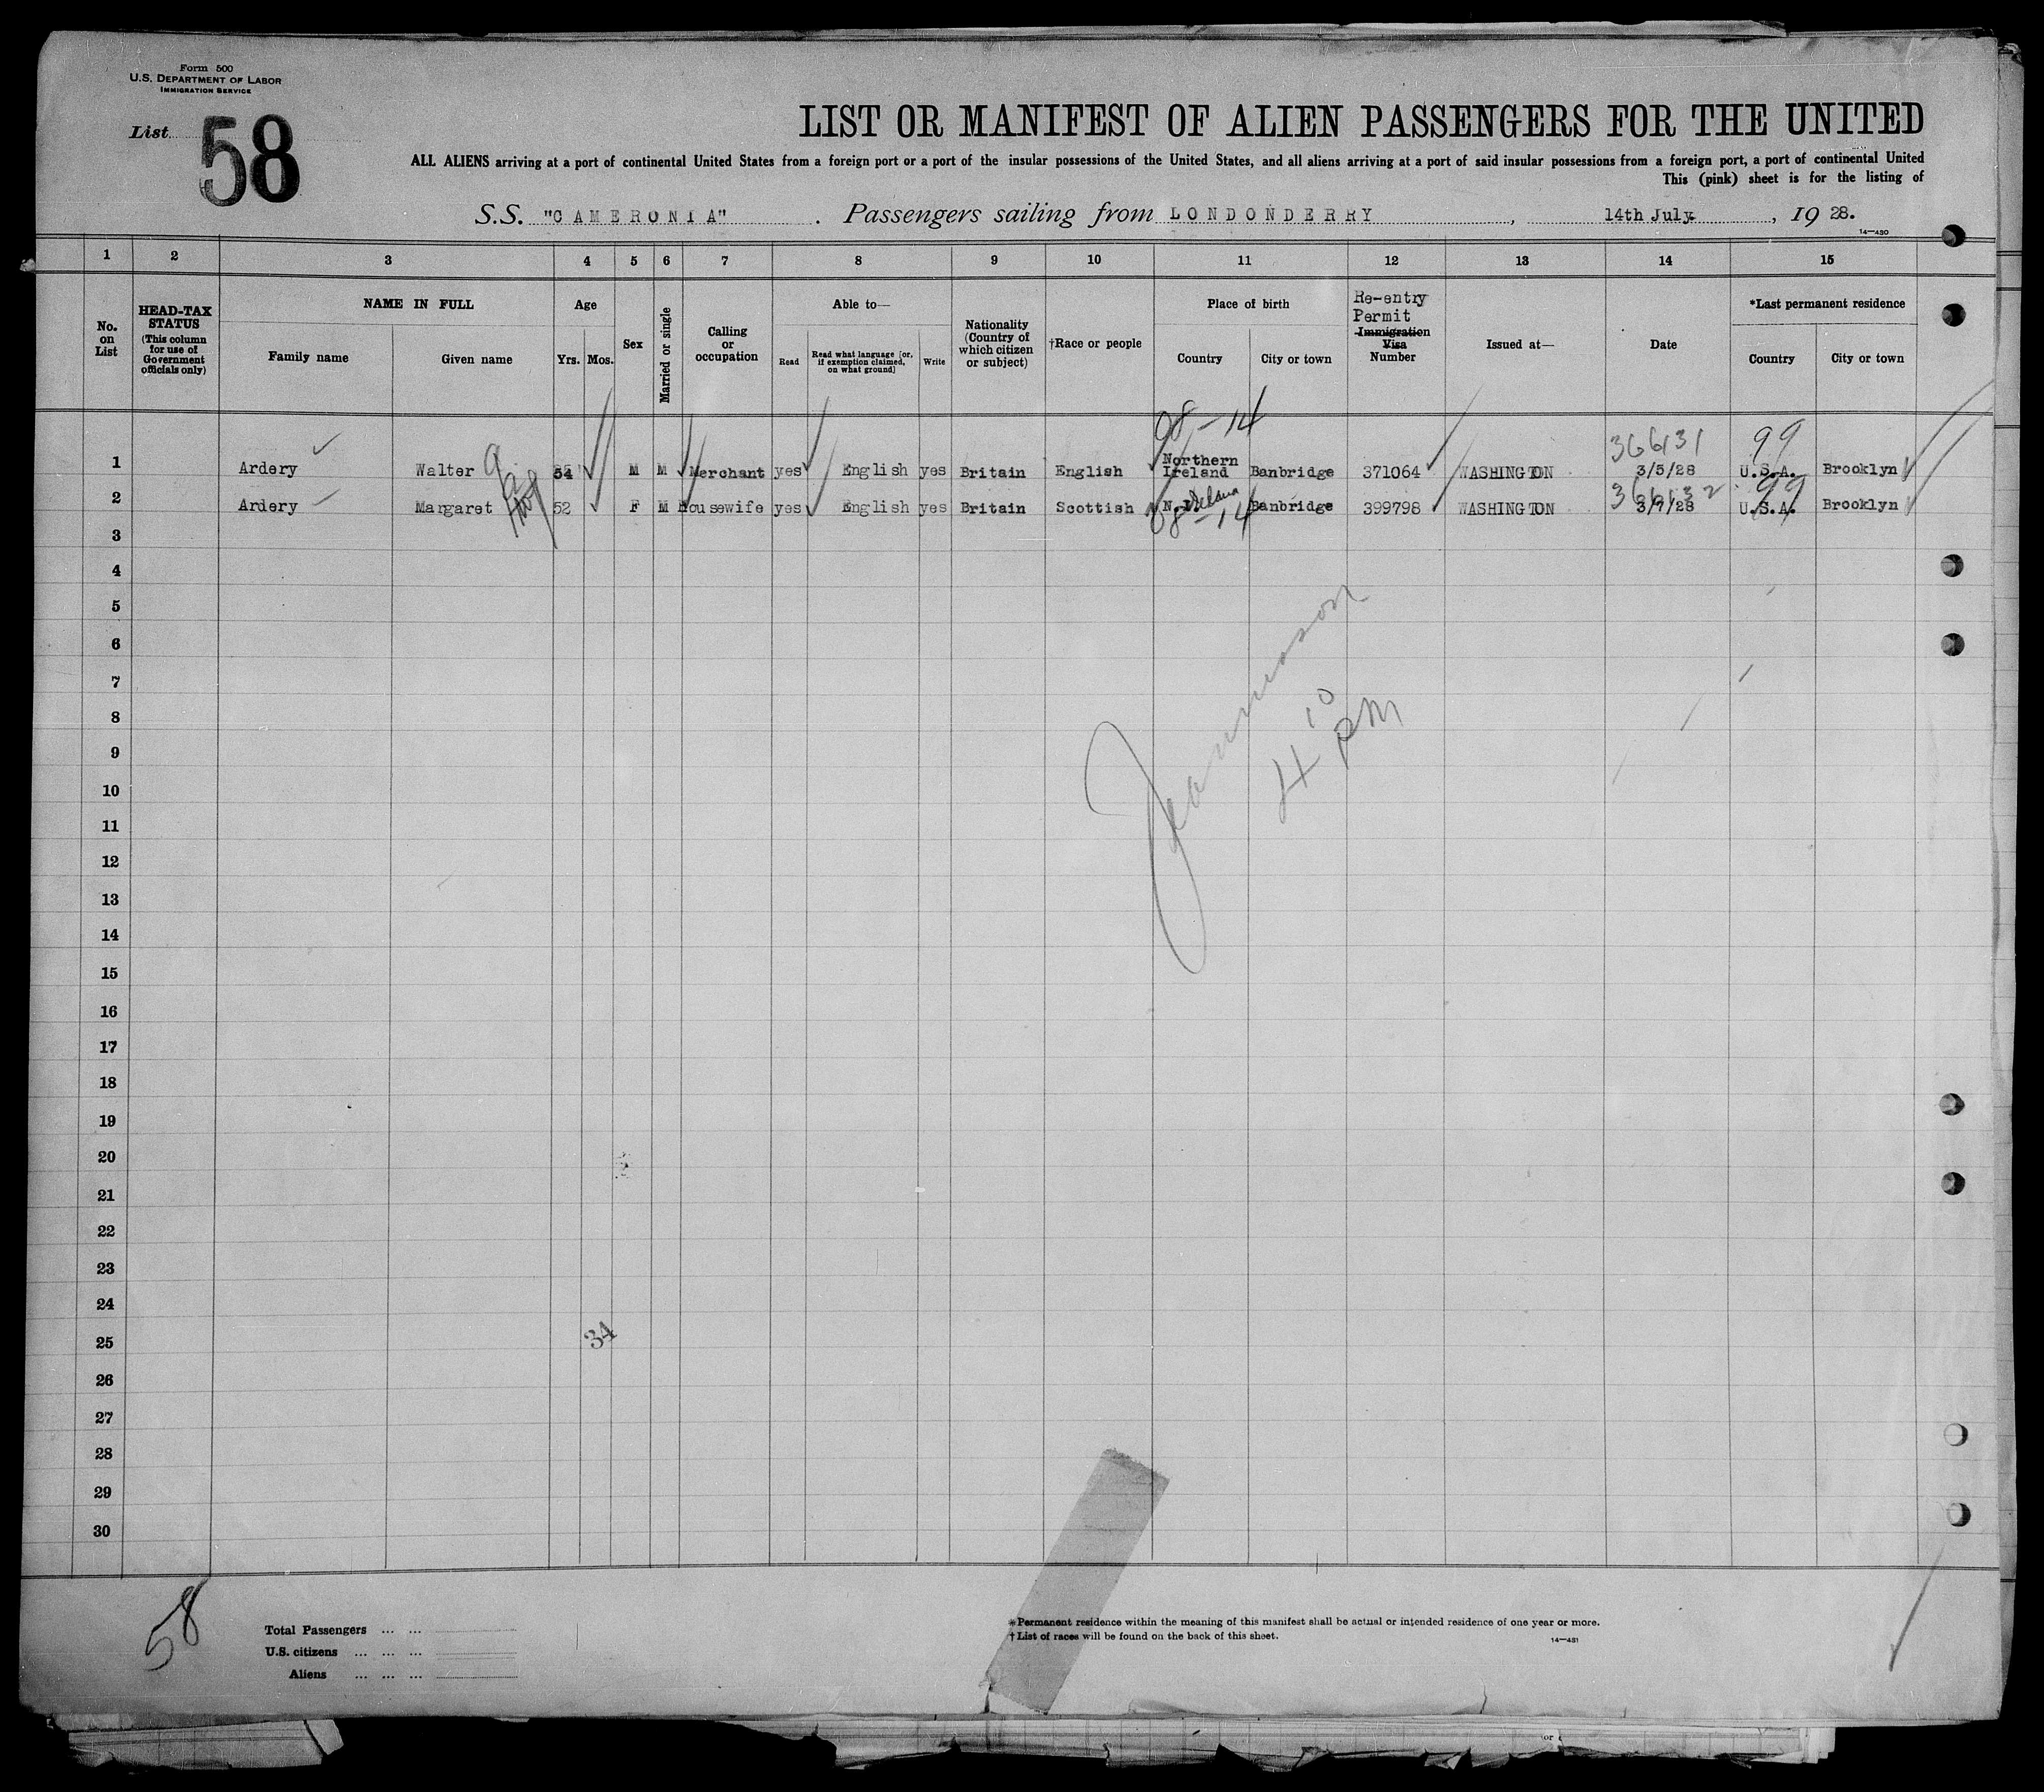 Form 500
U.S. DEPARTMENT OF LABOR
IMMIGRATION SERVICE
List 58
LIST OR MANIFEST OF ALIEN PASSENGERS FOR THE UNITED
ALL ALIENS arriving at a port of continental United States from a foreign port or a port of the insular possessions of the United States, and all aliens arriving at a port of said insular possessions from a foreign port, a port of continental United
This (pink) sheet is for the listing of
S.S. "CAMERONIA". Passengers sailing from LONDONDERRY, 14th July, 1928.
14—430
1 2 3 4 5 6 7 8 9 10 11 12 13 14 15
No. on List
HEAD-TAX STATUS
(This column for use of Government officials only)
NAME IN FULL
Family name
Given name
Age
Yrs. Mos.
Sex
Married or single
Calling or occupation
Able to—
Read
Read what language [or, if exemption claimed, on what ground]
Write
Nationality (Country of which citizen or subject)
†Race or people
Place of birth
Country
City or town
Re-entry Permit
Immigration Visa Number
Issued at—
Date
*Last permanent residence
Country
City or town
08-14 366131 99
1 Ardery Walter 54 M M Merchant yes English yes Britain English Northern Ireland Banbridge 371064 WASHINGTON 3/5/28 U.S.A. Brooklyn
366132 99
2 Ardery Margaret 52 F M Housewife yes English yes Britain Scottish N. Ireland Banbridge 399798 WASHINGTON 3/7/28 U.S.A. Brooklyn
08-14
3
4
5
6
7
8
9
10
11
12
13
14
15
16
17
18
19
20
21
22
23
24
25
26
27
28
29
30
4 10 PM
34
58
Total Passengers ... ...
U.S. citizens ... ... ...
Aliens ... ... ...
*Permanent residence within the meaning of this manifest shall be actual or intended residence of one year or more.
†List of races will be found on the back of this sheet.
14—431